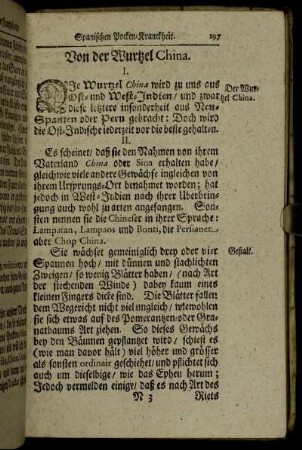 Spanischen Pocken-Kranckheit. 197
Von der Wurtzel China.
I.
DJe Wurtzel China wird zu uns aus
Ost- und West-Indien/ und zwar
diese letztere insonderheit aus Neu-
Spanien oder Peru gebracht: Doch wird
die Ost-Indische iederzeit vor die beste gehalten.
Der Wur-
tzel China.
II.
Es scheinet/ daß sie den Nahmen von ihrem
Vaterland China oder Sina erhalten habe/
gleichwie viel andere Gewächse ingleichen von
ihrem Ursprungs-Ort benahmet worden; hat
jedoch in West-Indien nach ihrer Überbrin-
gung auch wohl zu arten angefangen. Son-
sten nennen sie die Chineser in ihrer Sprache:
Lampatan, Lampaos und Bonti, die Persianer
aber Chop China.
Sie wächset gemeiniglich drey oder vier
Spannen hoch/ mit dünnen und stachlichten
Zweigen/ so wenig Blätter haben/ (nach Art
der stechenden Winde) dabey kaum eines
kleinen Fingers dicke sind. Die Blätter fallen
dem Wegericht nicht viel ungleich/ wiewohlen
sie sich etwas auf des Pomerantzen- oder Gra-
natbaums Art ziehen. So dieses Gewächs
bey den Bäumen gepflantzet wird/ schiest es
(wie man davor hält) viel höher und grösser
als sonsten ordinair geschiehet/ und pflichtet sich
auch um dieselbige/ wie das Epheu herum;
Jedoch vermelden einige/ daß es nach Art des
Gestalt.
N 3 Riets